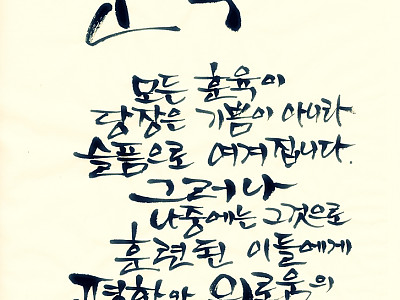 모든 훈육이
당장은 기쁨이 아니라
슬픔으로 여겨집니다.
그러나
나중에는 그것으로
훈련된 이들에게
평화와 의로움의